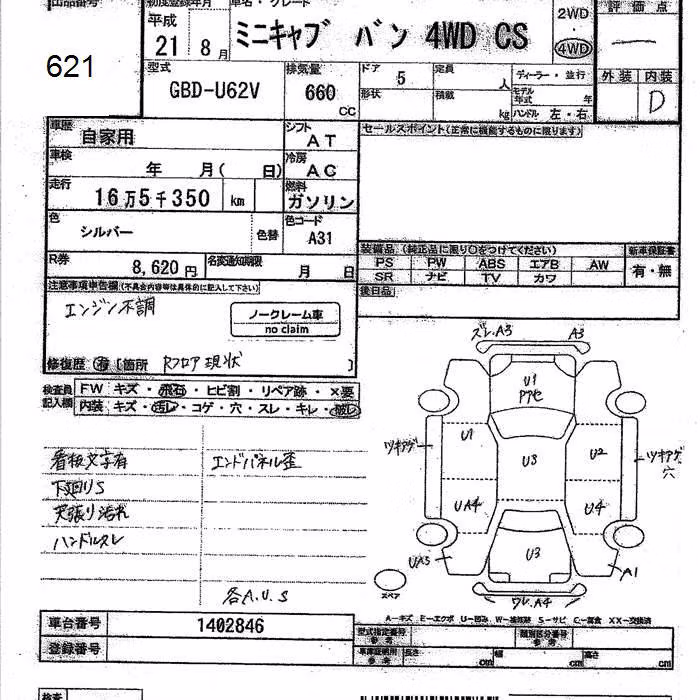 出品番号
初度登録年月
車名・グレード
評価点
平成
21 8月
ミニキャブ バン 4WD CS
2WD
・
4WD
621
型式
GBD-U62V
排気量
660
CC
ドア 5
形状
定員 人
積載 kg
ディーラー・並行
モデル年式 年
ハンドル 左・右
外装 内装
D
車歴
自家用
シフト
AT
セールスポイント(正常に機能するものに限ります)
車検
年 月( 日)
冷房
AC
走行
16万5千350 km
燃料
ガソリン
色
シルバー
色替
色コード
A31
R券
8,620円
名変通知期限
月 日
装備品 (純正品に限り○をつけてください)
新車保証書
PS PW ABS エアB AW
SR ナビ TV カワ
有・無
後日品
注意事項申告欄(不具合内容等は具体的に記入して下さい)
エンジン不調
ノークレーム車
no claim
修復歴 有 [箇所 Rフロア現状 ]
検査員記入欄
FW キズ・飛石・ヒビ割・リペア跡・×要
内装 キズ・汚レ・コゲ・穴・スレ・キレ・破レ
看板文字有
エンドパネル歪
下廻りS
天張り汚れ
ハンドルスレ
各A.U.S
ズレ.A3
A3
U1
U1
U3
U2
ツキアゲ
ツキアゲ
穴
UA4
U4
U3
UA5
A1
ワレ.A4
スペア
A-キズ E-エクボ U-凹み W-補修跡 S-サビ C-腐食 XX-交換済
車台番号
1402846
登録番号
型式指定番号
参考
類別区分番号
参考
車庫証明用
参考
長さ cm
幅 cm
高さ cm
検査